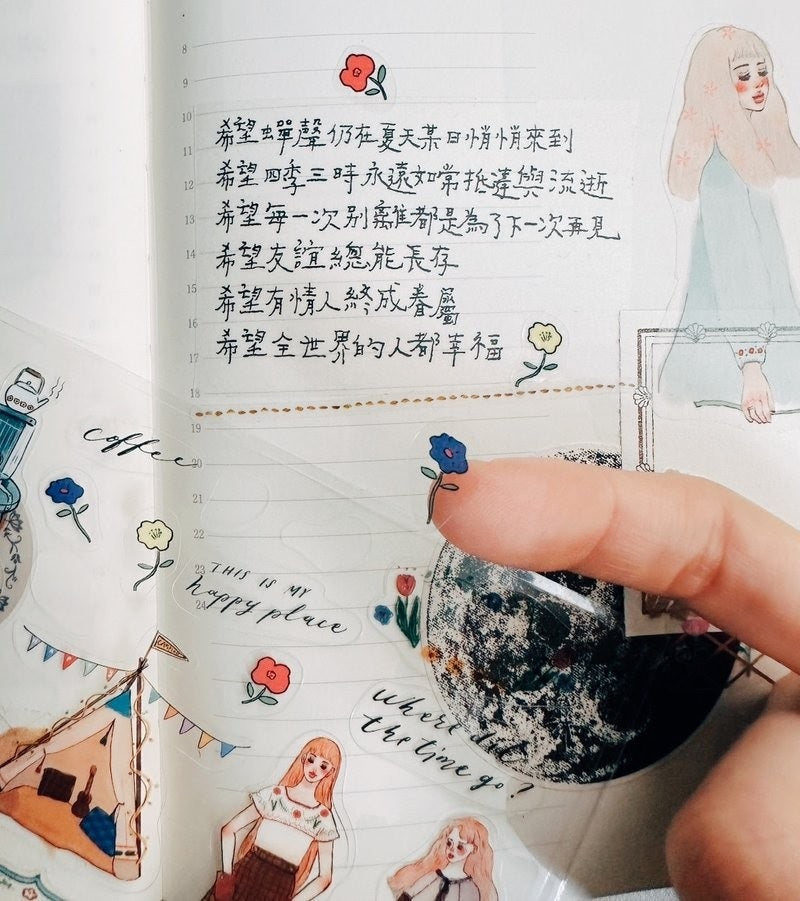 8
9
10
希望蟬聲仍在夏天某日悄悄來到
11
希望四季三時永遠如常抵達與流逝
12
希望每一次別離都是為了下一次再見
13
希望友誼總能長存
14
希望有情人終成眷屬
15
16
希望全世界的人都幸福
17
18
19
coffee
20
21
22
23
THIS IS MY
24
happy place
where did
the time go?